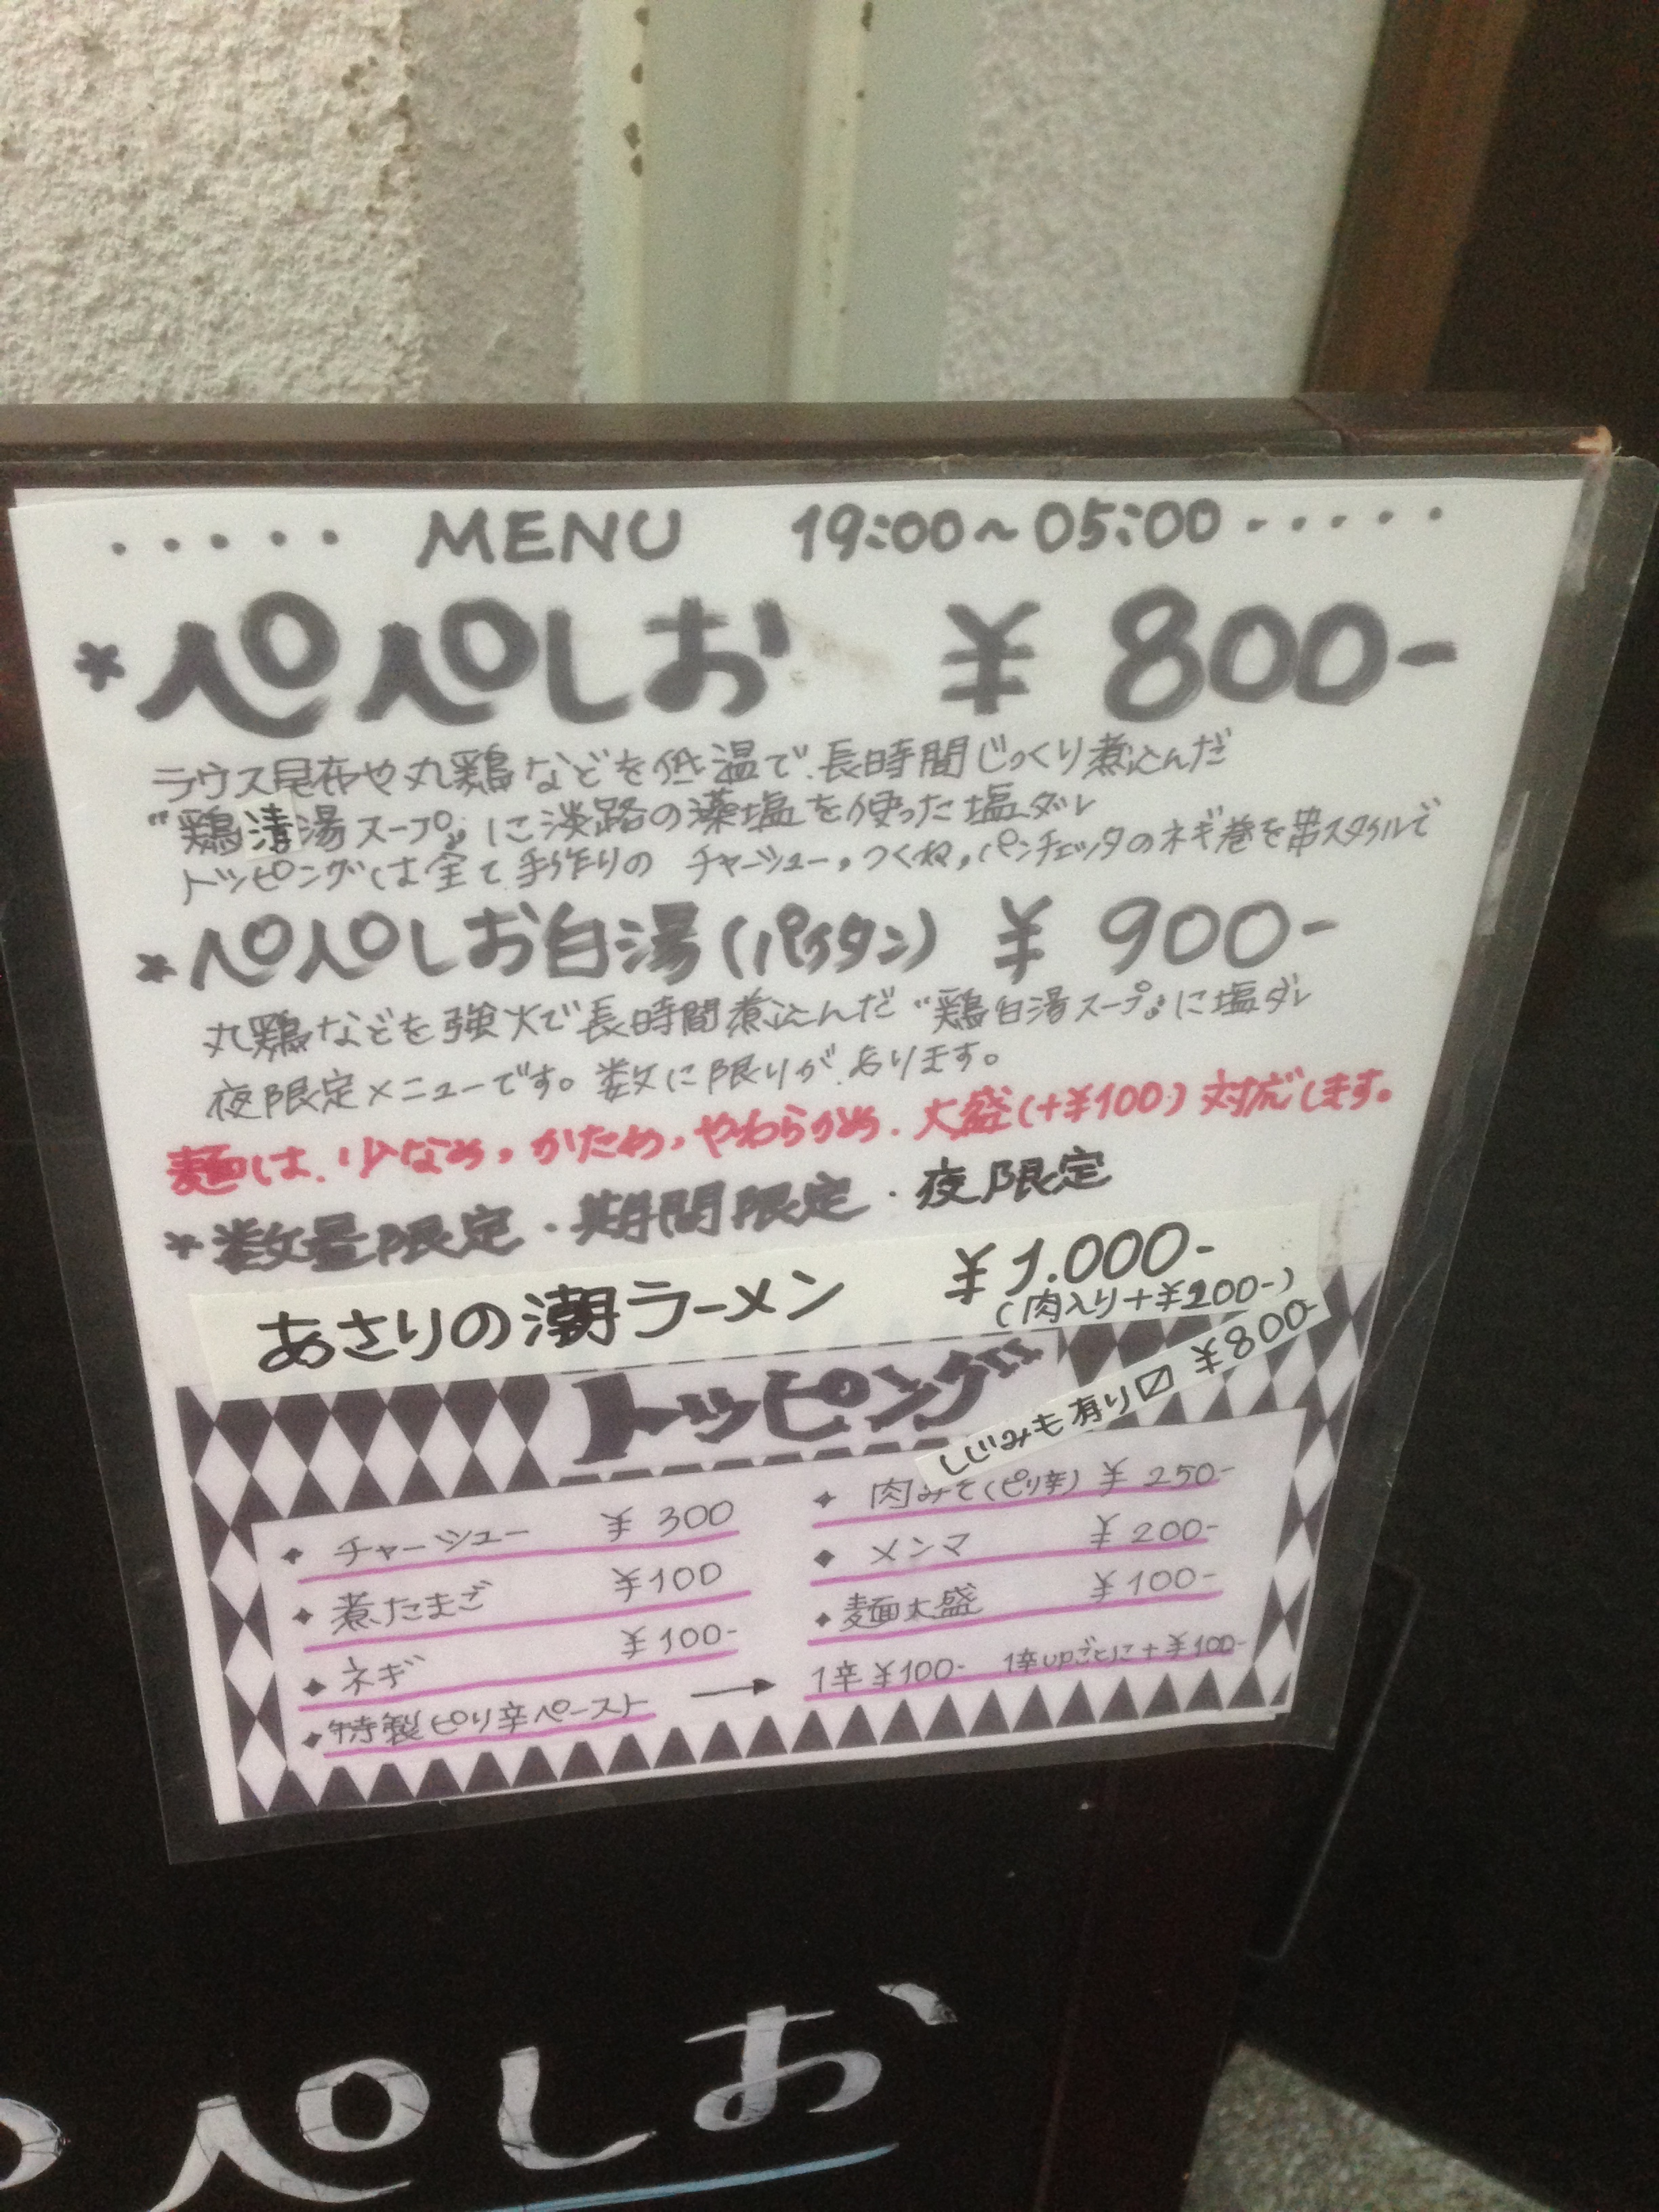 ..... MENU 19:00~05:00 .....
* ぺぺしお ¥800-
ラウス昆布や丸鶏などを低温で、長時間じっくり煮込んだ
"鶏清湯スープ"に淡路の藻塩を使った塩ダレ
トッピングは全て手作りの チャーシュー,つくね,パンチェッタのネギ巻を串スタイルで
* ぺぺしお白湯(パイタン) ¥900-
丸鶏などを強火で長時間煮込んだ"鶏白湯スープ"に塩ダレ
夜限定メニューです。数に限りが、あります。
麺は、少なめ,かため,やわらかめ、大盛(+¥100)対応します。
* 数量限定・期間限定・夜限定
あさりの潮ラーメン ¥1.000-
(肉入り+¥200-)
しじみも有り〼 ¥800-
トッピング
◆ チャーシュー ¥300
◆ 煮たまご ¥100
◆ ネギ ¥100-
◆ 特製ピリ辛ペースト → 1辛¥100- 1辛upごとに+¥100-
◆ 肉みそ(ピリ辛) ¥250-
◆ メンマ ¥200-
◆ 麺大盛 ¥100-
ぺしお